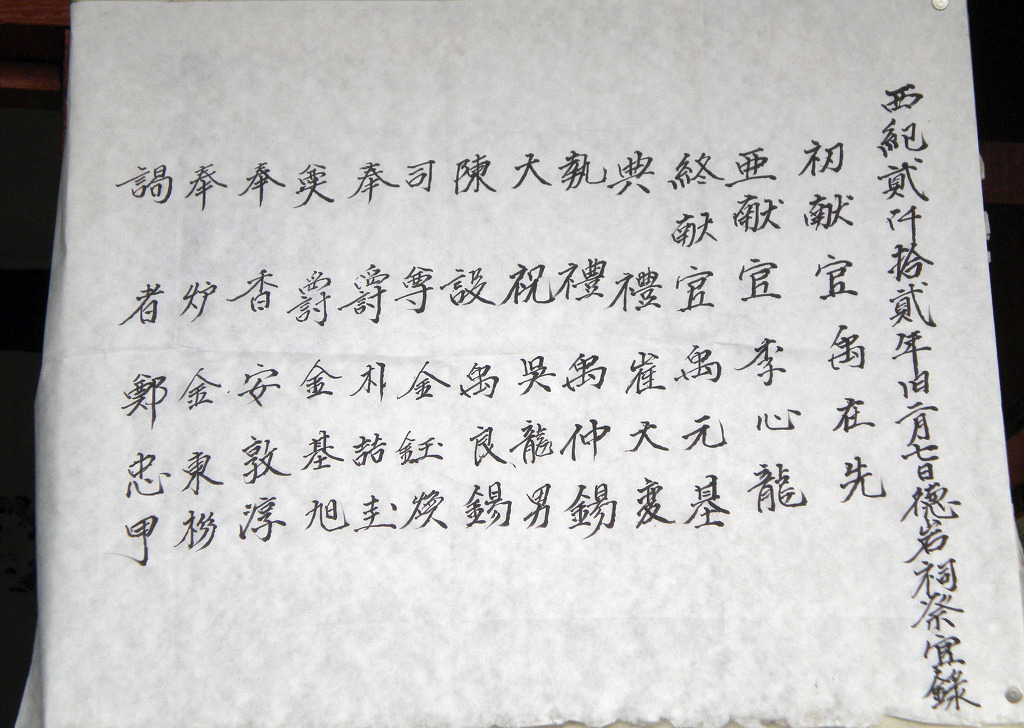 西紀貳仟拾貳年旧二月七日德岩祠祭官錄
初献官 禹在先
亜献官 李心龍
終献官 禹元基
典禮 崔大夏
執禮 禹仲錫
大祝 吳龍男
陳設 禹良錫
司尊 金鈺煥
奉爵 朴喆圭
奠爵 金基旭
奉香 安敦淳
奉炉 金東杉
謁者 鄭忠甲